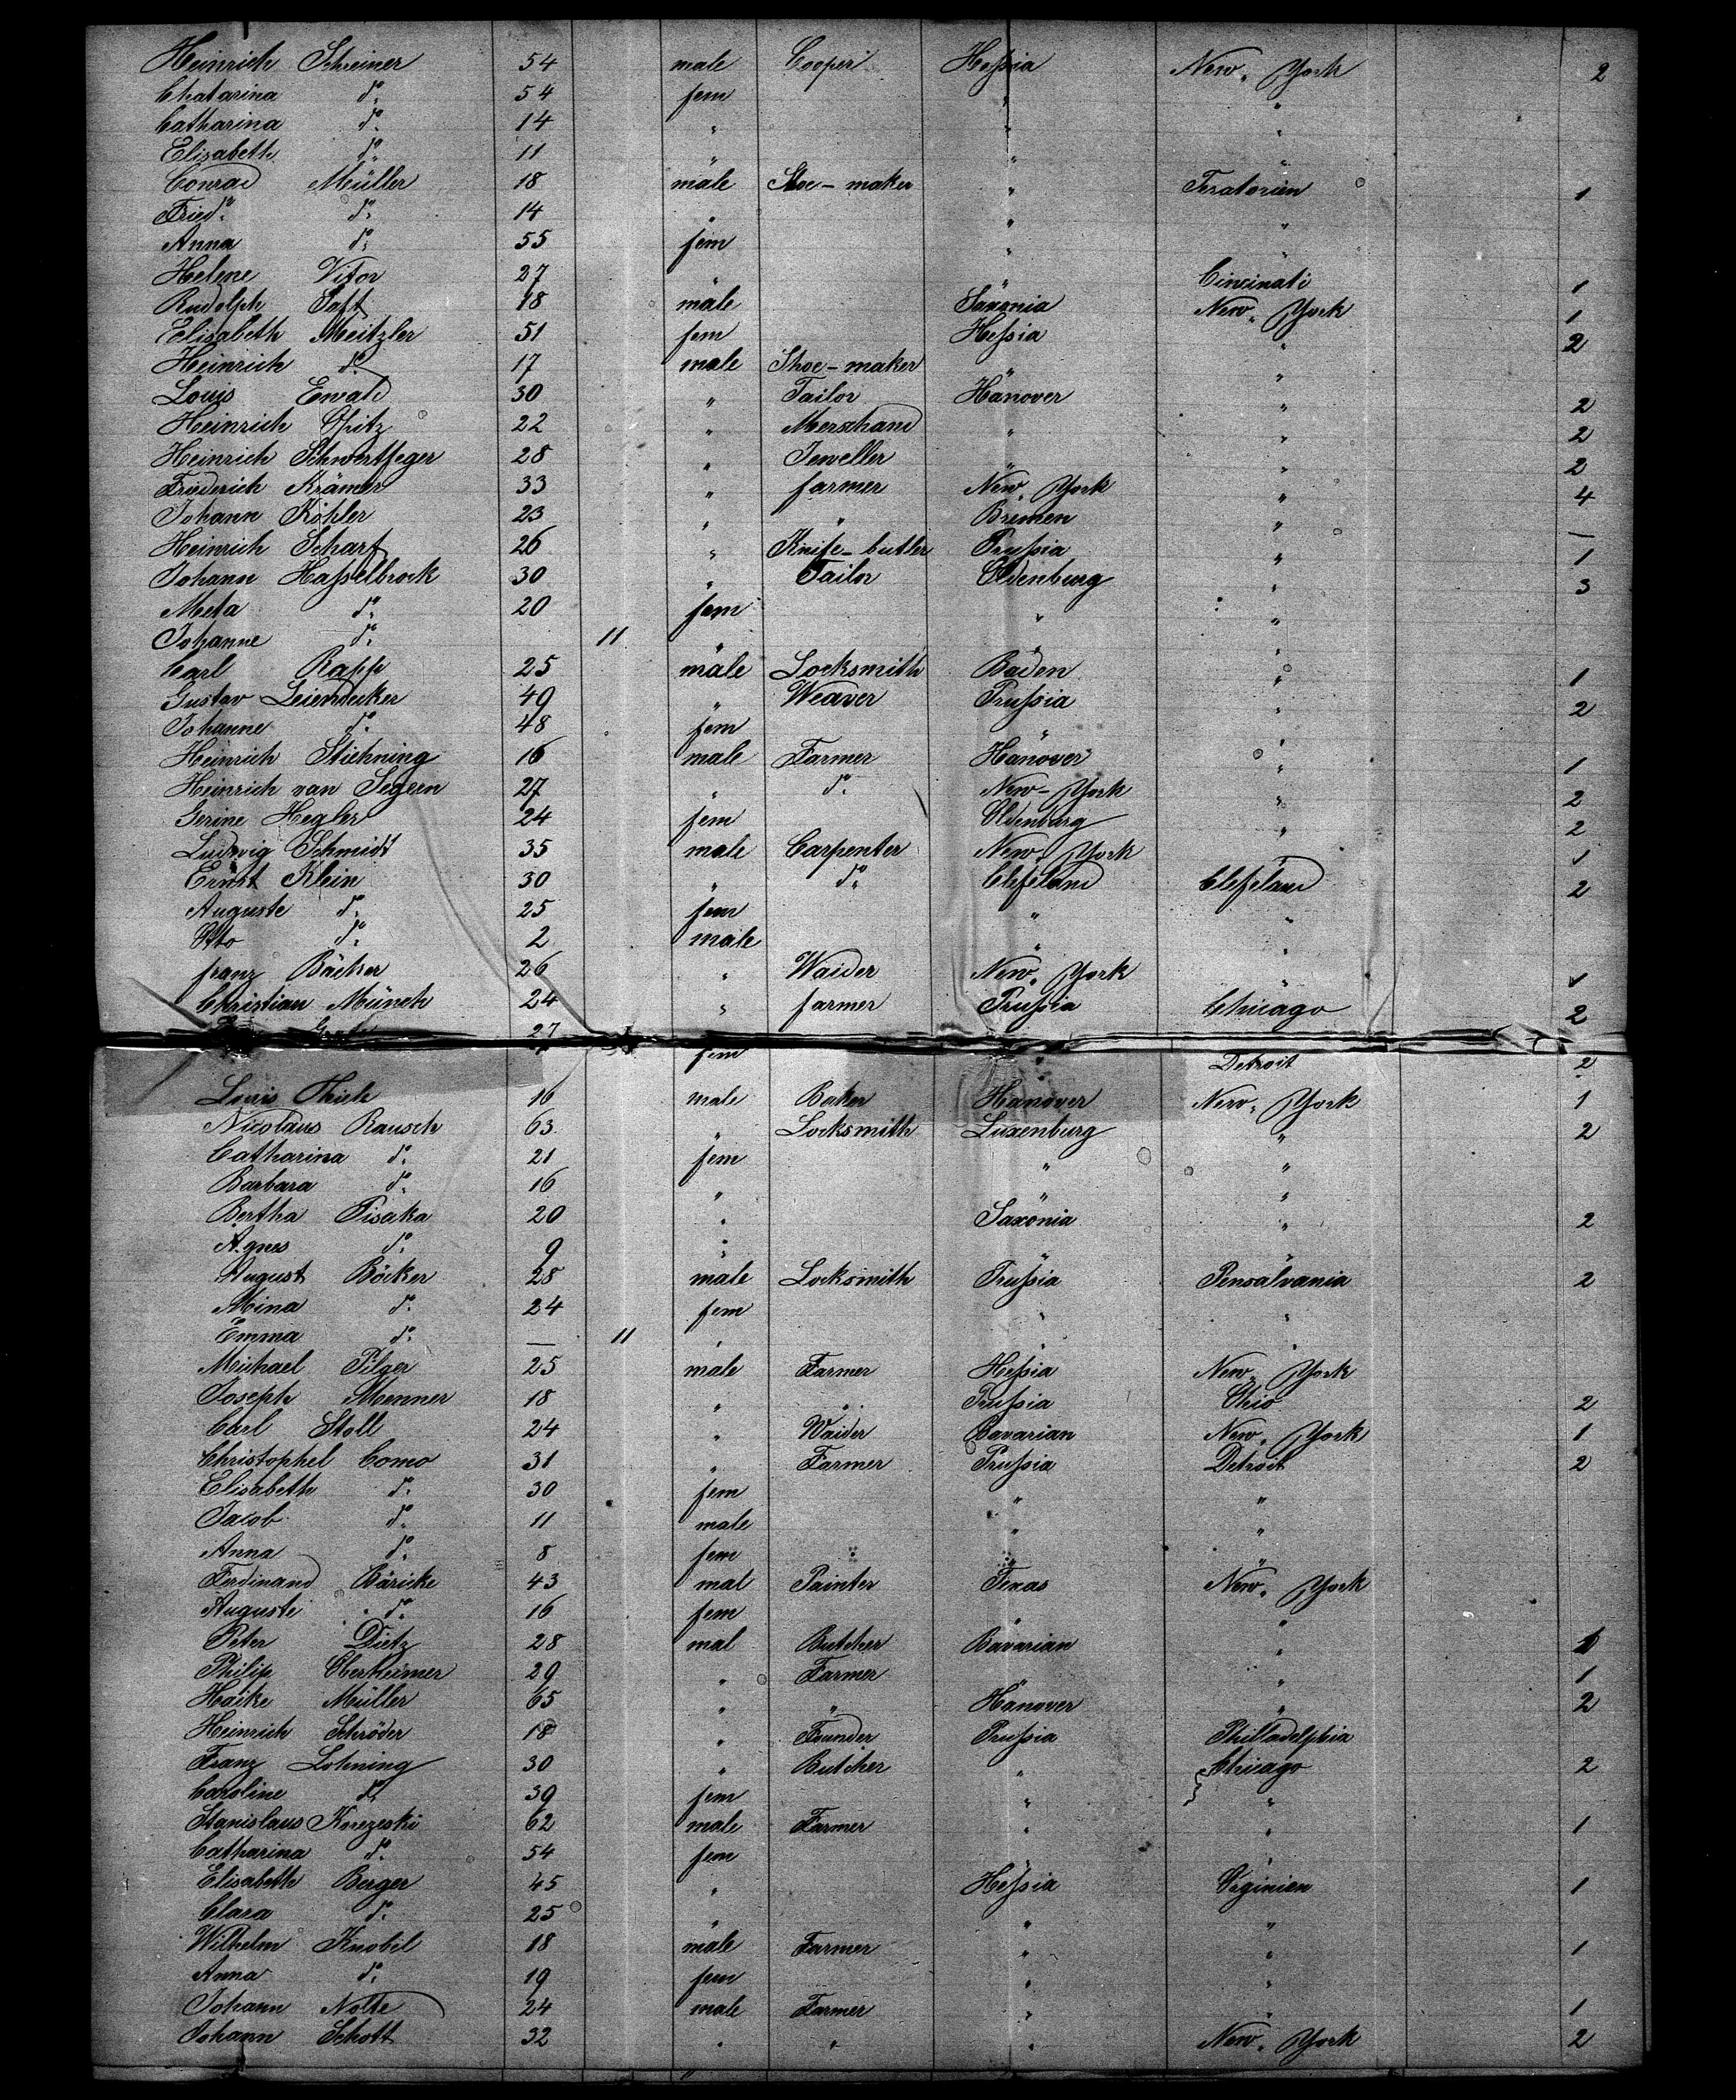 Heinrich Schreiner 54 male Cooper Heſsia New-York 2
Chatarina do 54 fem " "
Catharina do 14 " " "
Elisabeth do 11 " "
Conrad Müller 18 male Shoe-maker " 1
Fried. do 14 " " "
Anna do 55 fem " "
Helene Vitor 27 " " Cincinati 1
Rudolph Saft 18 male Saxonia New-York 1
Elisabeth Meitzler 51 fem Heſsia " 2
Heinrich do 17 male Shoe-maker " "
Louis Ewald 30 " Tailor Hanover " 2
Heinrich Opitz 22 " Merschand " " 2
Heinrich Schwertfeger 28 " Jeweller " " 2
Friederich Krämer 33 " farmer New-York " 4
Johann Köhler 23 " " Bremen " —
Heinrich Scharf 26 " Knife-butler Pruſsia " 1
Johann Haſselbrock 30 " Tailor Oldenburg " 3
Meta do 20 fem " "
Johanne do 11 " " "
Carl Rapp 25 male Locksmith Baden " 1
Gustav Leiendecker 49 " Weaver Pruſsia " 2
Johanne do 48 fem " "
Heinrich Stiehning 16 male Farmer Hanover " 1
Heinrich van Segern 27 " do New-York " 2
Gerine Hegler 24 fem Oldenburg " 2
Ludwig Schmidt 35 male Carpenter New-York " 1
Ernst Klein 30 " do Clefeland Clefeland 2
Auguste do 25 fem " "
Otto do 2 male " "
franz Bäcker 26 " Waider New-York " 1
Christian Münch 24 " farmer Pruſsia Chicago 2
27 fem " Detroit 2
Louis 16 male Baker Hanover New-York 1
Nicolaus Rausch 63 " Locksmith Luxenburg " 2
Catharina do 21 fem " "
Barbara do 16 " " "
Bertha Pisaka 20 " Saxonia " 2
Agnes do 9 " " "
August Böcker 28 male Locksmith Pruſsia Pensalvania 2
Mina do 24 fem " "
Emma do — 11 " " "
Michael Pilger 25 male Farmer Heſsia New-York
Joseph Menner 18 " " Pruſsia Ohio 2
Carl Stoll 24 " Waider Bavarian New-York 1
Christophel Como 31 " Farmer Pruſsia Detroit 2
Elisabeth do 30 fem " "
Jacob do 11 male " "
Anna do 8 fem " "
Ferdinand Bäricke 43 mal Painter Texas New-York
Auguste do 16 fem " "
Peter Dietz 28 mal Butcher Bavarian " 1
Philip Oberheimer 29 " Farmer " " 1
Haike Müller 65 " " Hanover " 2
Heinrich Schröder 18 " Founder Pruſsia Philladelphia
Franz Lohning 30 " Butcher " Chicago 2
Caroline do 39 fem " "
Stanislaus Knezeski 62 male Farmer " " 1
Catharina do 54 fem " "
Elisabeth Berger 45 " Heſsia Virginien 1
Clara do 25 " " "
Wilhelm Knobel 18 male Farmer " " 1
Anna do 19 fem " "
Johann Nolte 24 male Farmer " " 1
Johann Schott 32 " " " New-York 2